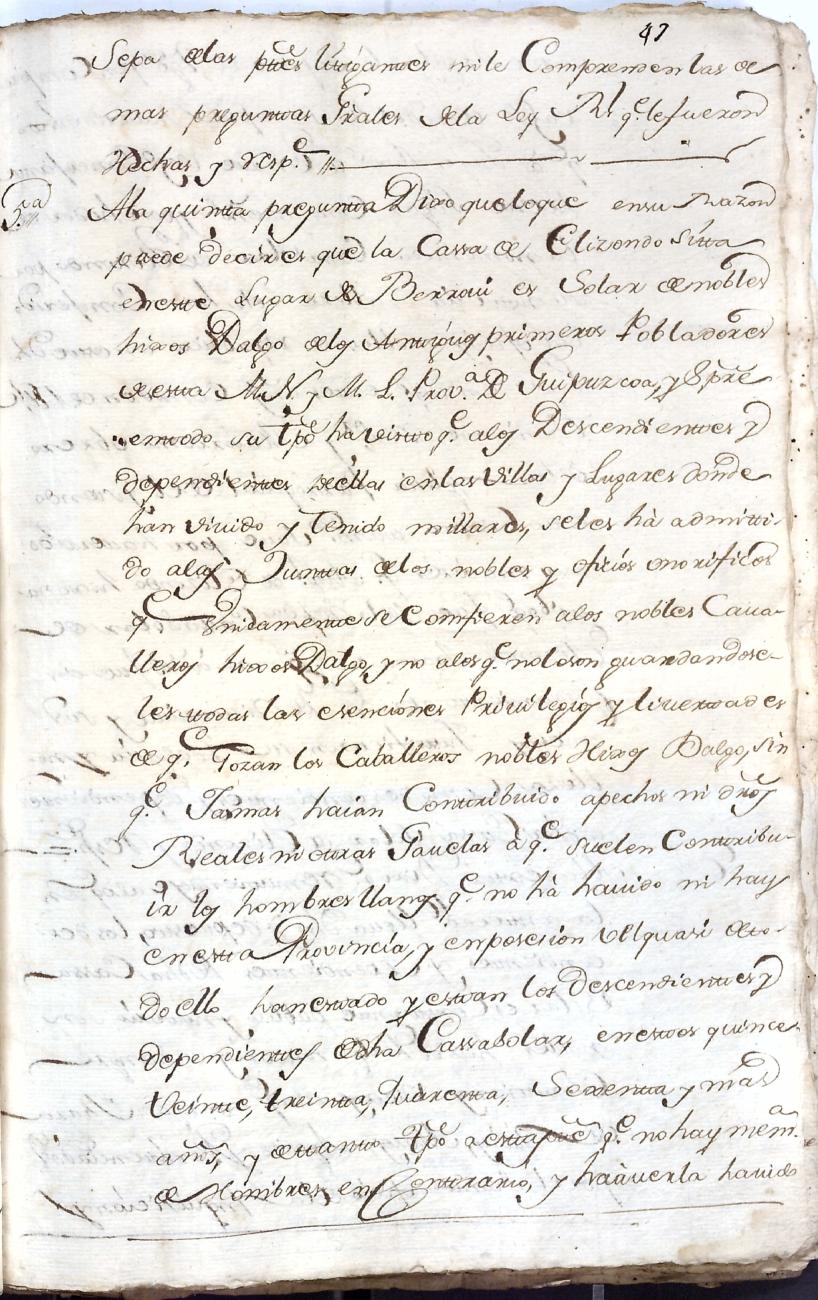 47
Sepa de las ptes litigantes ni le Comprenden las de
mas preguntas Grales de la Ley Rl q.e le fueron
Hechas y resp.e
5.a A la quinta pregunta Dixo que lo que en su razon
puede decir es que la Cassa de Elizondo sitta
en este Lugar de Berrovi es Solar de nobles
hixos Dalgo de los Antiguos primeros Pobladores
de esta M. N. y M. L. Prov.a de Guipuzcoa, y
en todo su tpo ha visto q.e a los Descendientes y
dependientes de ellas en las Villas y Lugares donde
han vivido y Tenido millares, se les hà admitti-
do a las Juntas de los nobles y oficiós onorificos
q.e Unidamente se Confieren a los nobles Cava-
lleros hixos Dalgo, y no a los q.e no lo son guardandose-
les todas las esenciónes Privilegiós y livertades
de q.e Gozan los Caballeros nobles Hixos Dalgo, sin
q.e Jamas haian Contribuido a pechos ni dros
Reales ni otras Gavelas a q.e suelen Contribu-
ir los hombres llanos q.e no hà havido ni hay
en esta Provincia, y en posesion vel quasi de to-
do ello han estado y estan los Descendientes y
dependientes de dha Cassa Solar, en estos quince
Veinte, treinta, Quarenta, Sesenta y mas
años, y de tanto tpo a esta pte q.e no hay mem.a
de Hombres en Contrario, y ha haverla havido